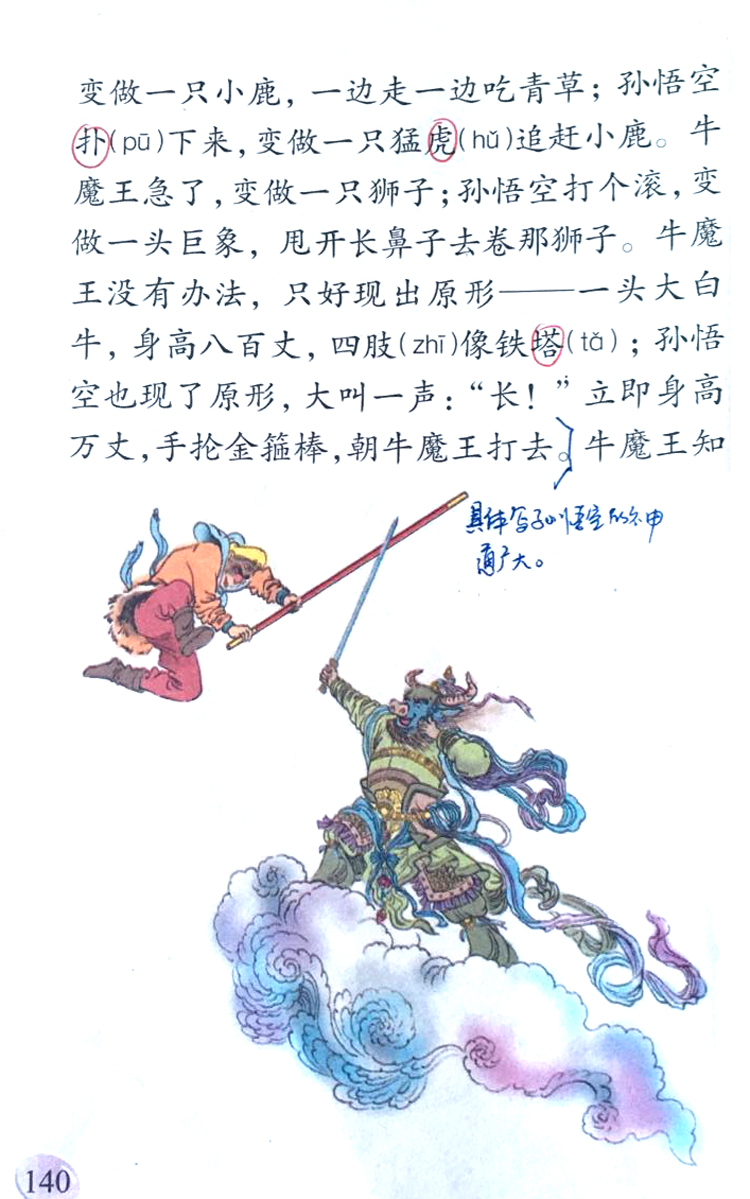 变做一只小鹿，一边走一边吃青草；孙悟空
扑(pū)下来，变做一只猛虎(hǔ)追赶小鹿。牛
魔王急了，变做一只狮子；孙悟空打个滚，变
做一头巨象，甩开长鼻子去卷那狮子。牛魔
王没有办法，只好现出原形——一头大白
牛，身高八百丈，四肢(zhī)像铁塔(tǎ)；孙悟
空也现了原形，大叫一声：“长！”立即身高
万丈，手抡金箍棒，朝牛魔王打去。牛魔王知
具体写孙悟空的神
通广大。
140